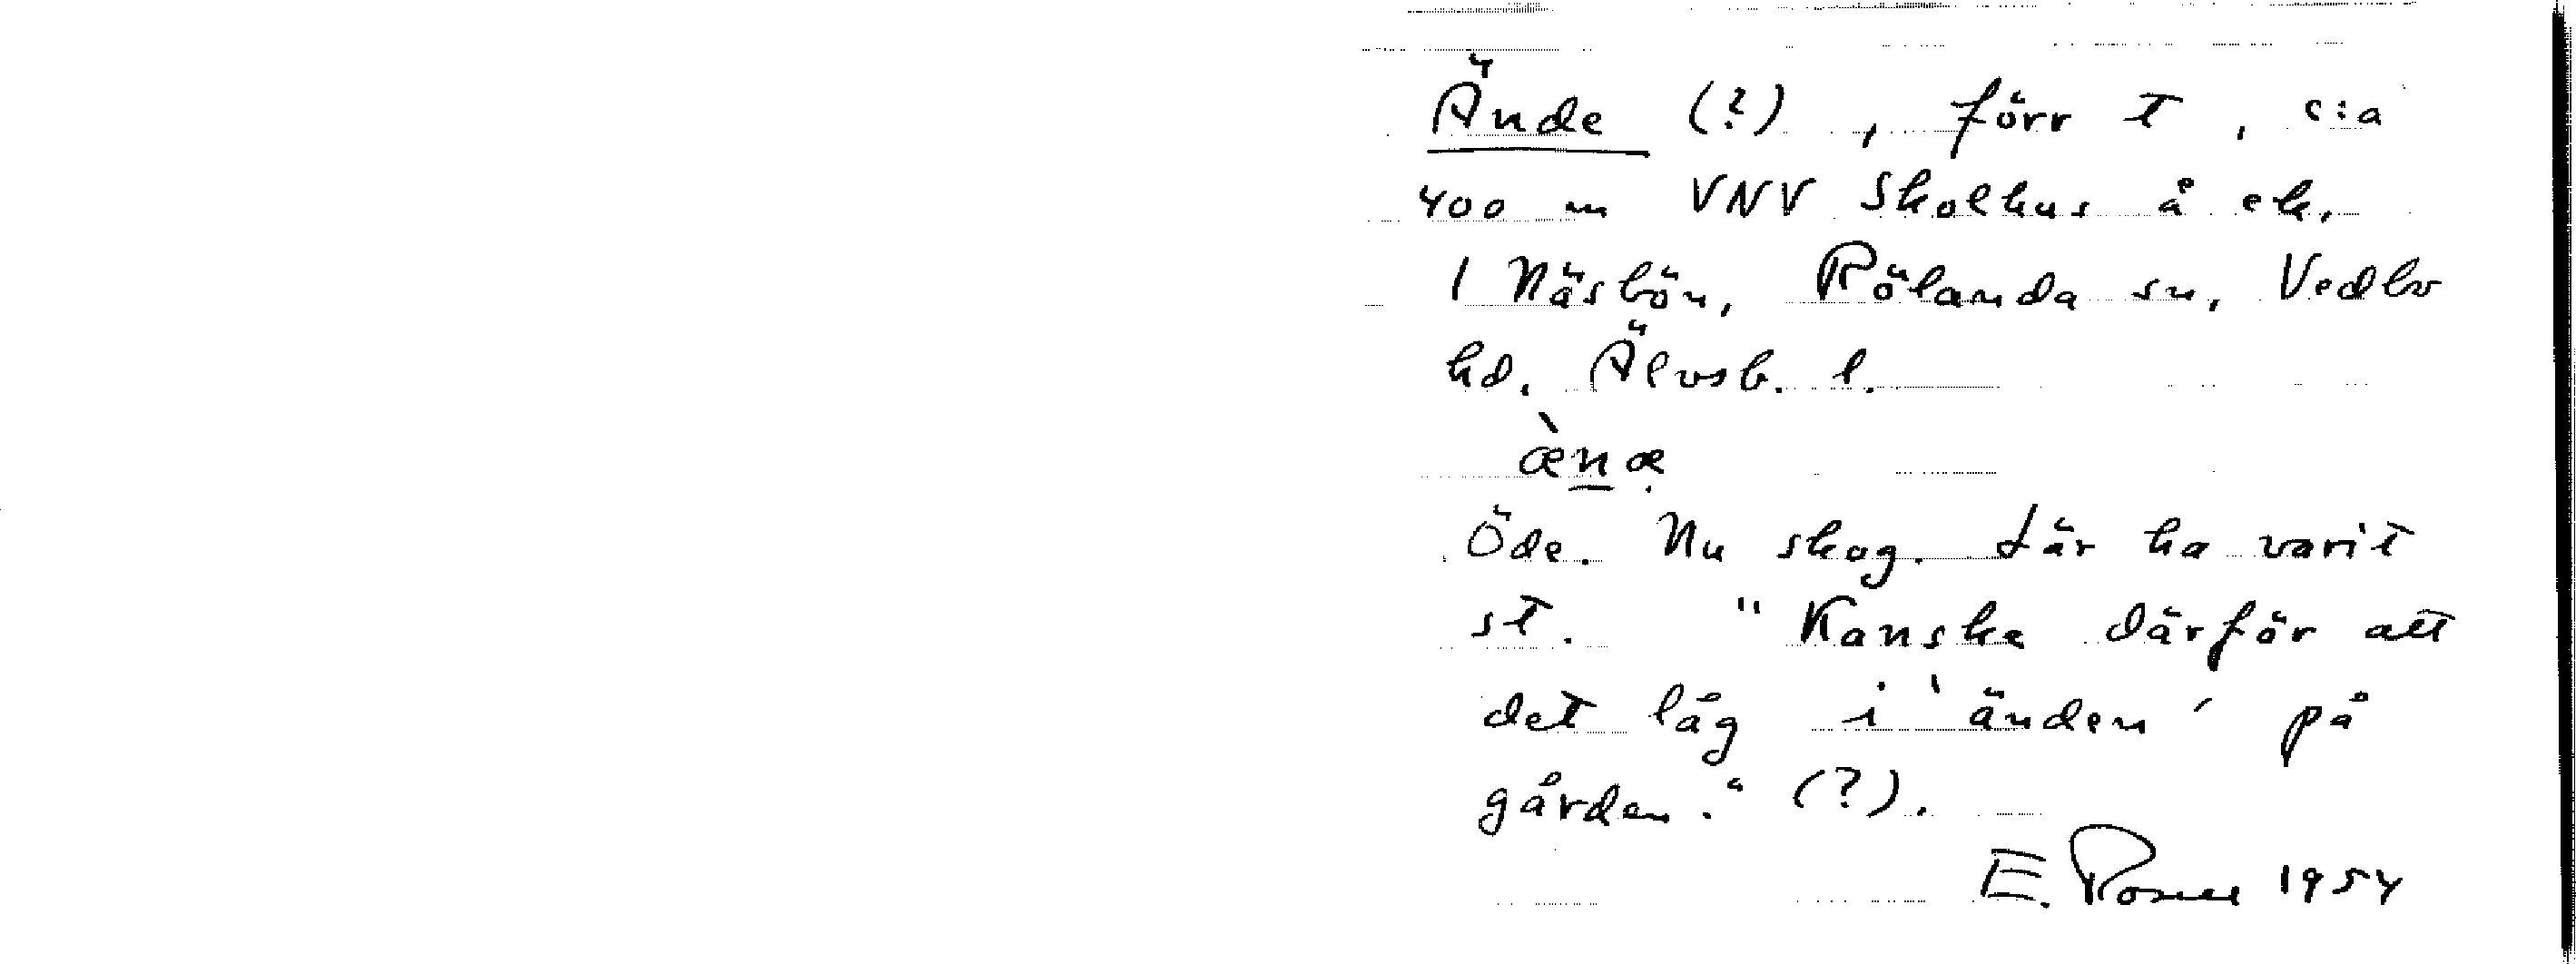 Ände (?), förr t, c:a
400 m VNV Skolhus å ek.
1 Näsbön, Rölanda sn, Vedbo
hd. Älvsb. l.
æ̀næ
Öde. Nu skog. Där ha varit
st. "Kanske därför att
det låg i 'änden' på
gården." (?).
E. 1954